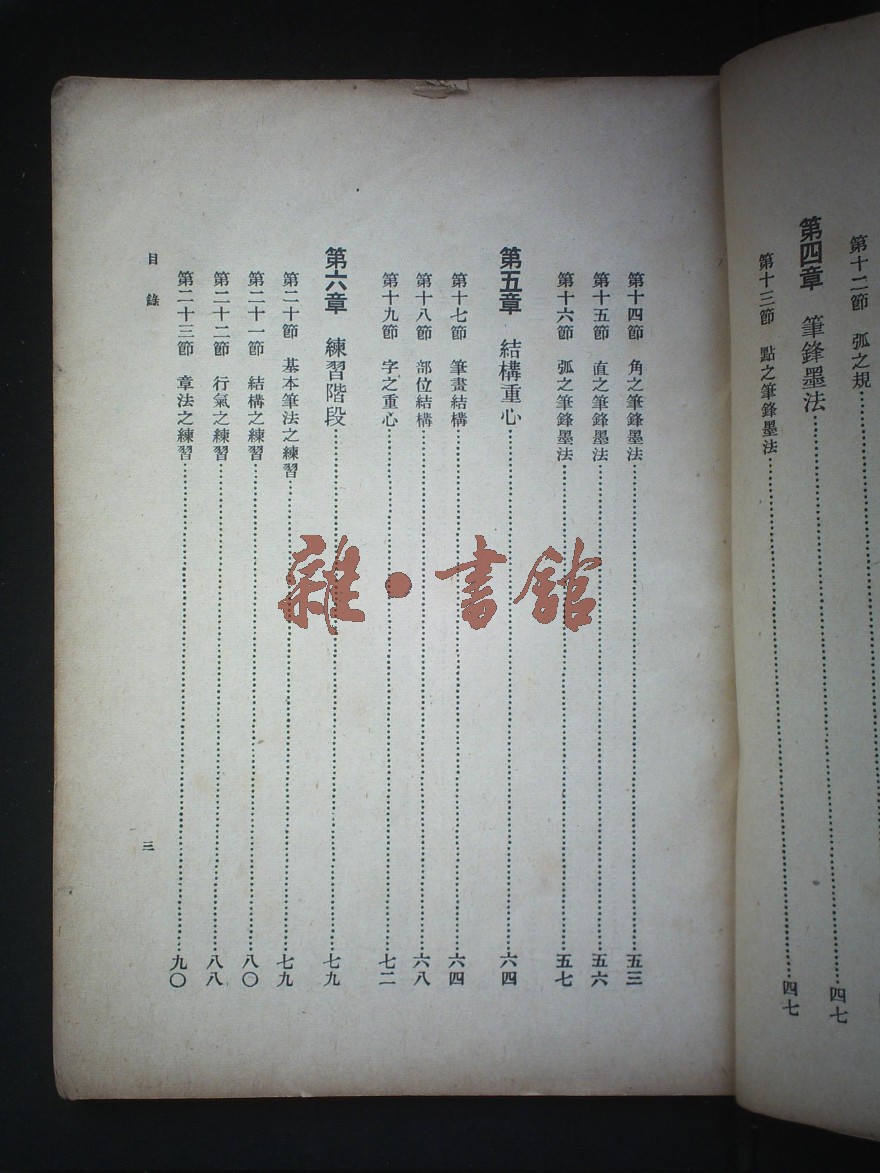 第十二節　弧之規
第四章　筆鋒墨法……四七
第十三節　點之筆鋒墨法……四七
第十四節　角之筆鋒墨法……五三
第十五節　直之筆鋒墨法……五六
第十六節　弧之筆鋒墨法……五七
第五章　結構重心……六四
第十七節　筆畫結構……六四
第十八節　部位結構……六八
第十九節　字之重心……七二
第六章　練習階段……七九
第二十節　基本筆法之練習……七九
第二十一節　結構之練習……八〇
第二十二節　行氣之練習……八八
第二十三節　章法之練習……九〇
目錄
三
雜・書館